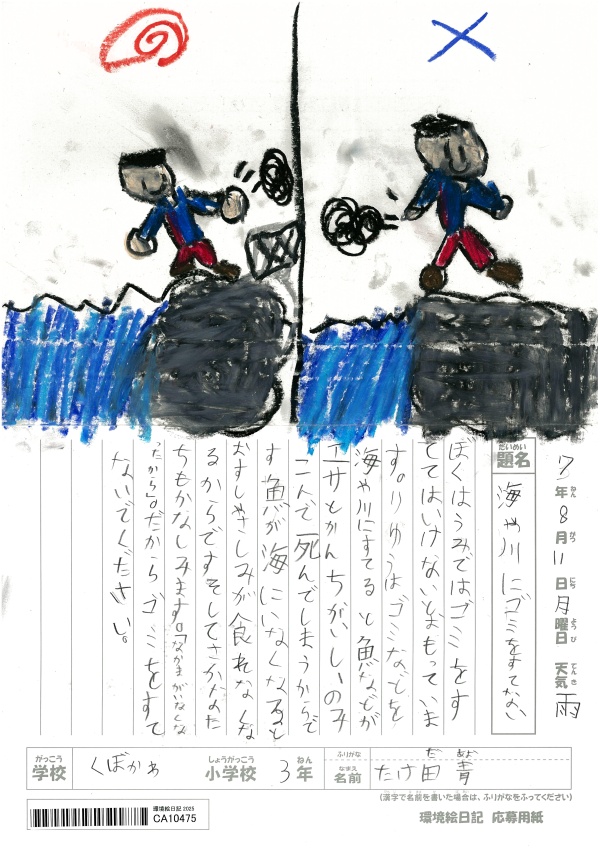 7年ねん8月がつ11日にち月曜日ようび 天気てんき雨
だいめい
題名 海や川にゴミをすてない
ぼくはうみではゴミをす
ててはいけないとおもっていま
す。りゆうはゴミなどを
海や川にすてると魚などが
エサとかんちがいしいのみ
こんで死んでしまうからで
す魚が海にいなくなると
おすしやさしみが食れなくな
るからですそしてさかなた
ちもかなしみます。「なかまがいなくな
ったから」。だからゴミをすて
ないでください。
がっこう しょうがっこう ねん ふりがな だ あお
学校 くぼかわ 小学校 3年 なまえ 名前 たけ田青
(漢字で名前を書いた場合は、ふりがなをふってください)
環境絵日記 応募用紙
環境絵日記 2025
CA10475